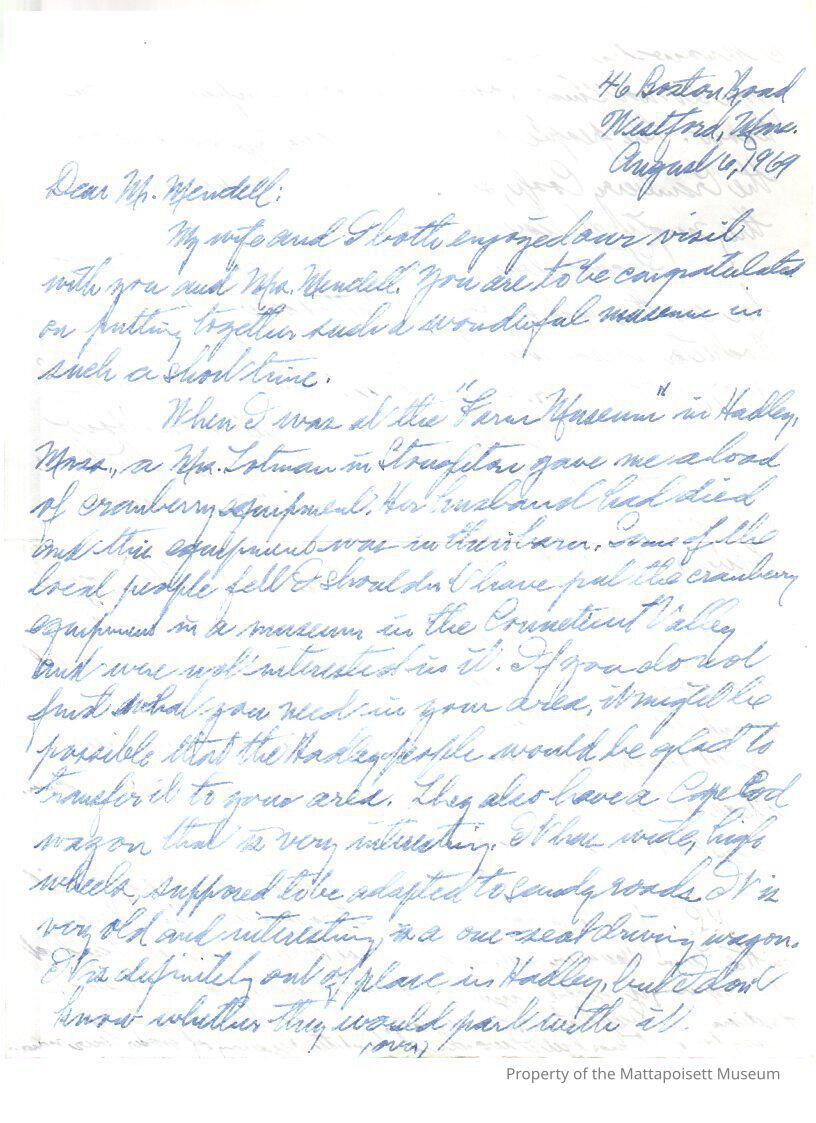 46 Boston Road
Westford, Mass.
August 6, 1969
Dear Mr. Mendell:
My wife and I both enjoyed our visit
with you and Mrs. Mendell. You are to be congratulated
on putting together such a wonderful museum in
such a short time.
When I was at the "Farm Museum" in Hadley,
Mass., a Mrs. Lotman in Stoughton gave me a load
of cranberry equipment. Her husband had died
and this equipment was in their barn. Some of the
local people felt I shouldn't have put the cranberry
equipment in a museum in the Connecticut Valley
and were not interested in it. If you do not
find what you need in your area, it might be
possible that the Hadley people would be glad to
transfer it to your area. They also have a Cape Cod
wagon that is very interesting. It has wide, high
wheels, supposed to be adapted to sandy roads. It is
very old and interesting, is a one-seat driving wagon.
It is definitely out of place in Hadley, but I don't
know whether they would part with it.
(over)
Property of the Mattapoisett Museum